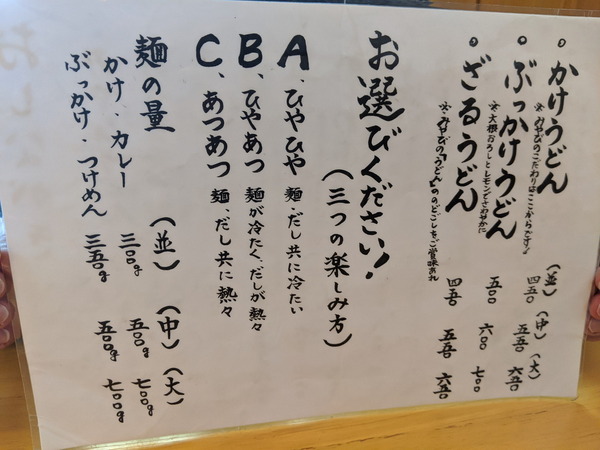 （並）（中）（大）
◦かけうどん 四五〇 五五〇 六五〇
※みやびのこだわりはここからです！
◦ぶっかけうどん 五〇〇 六〇〇 七〇〇
※大根おろしとレモンでさわやかに
◦ざるうどん 四五〇 五五〇 六五〇
※みやびの「うどん」ののどごしをご賞味あれ
お選びください！
（三つの楽しみ方）
A、ひやひや 麺、だし共に冷たい
B、ひやあつ 麺が冷たく、だしが熱々
C、あつあつ 麺、だし共に熱々
麺の量 （並）（中）（大）
かけ・カレー 三〇〇g 五〇〇g 七〇〇g
ぶっかけ・つけめん 三五〇g 五〇〇g 七〇〇g